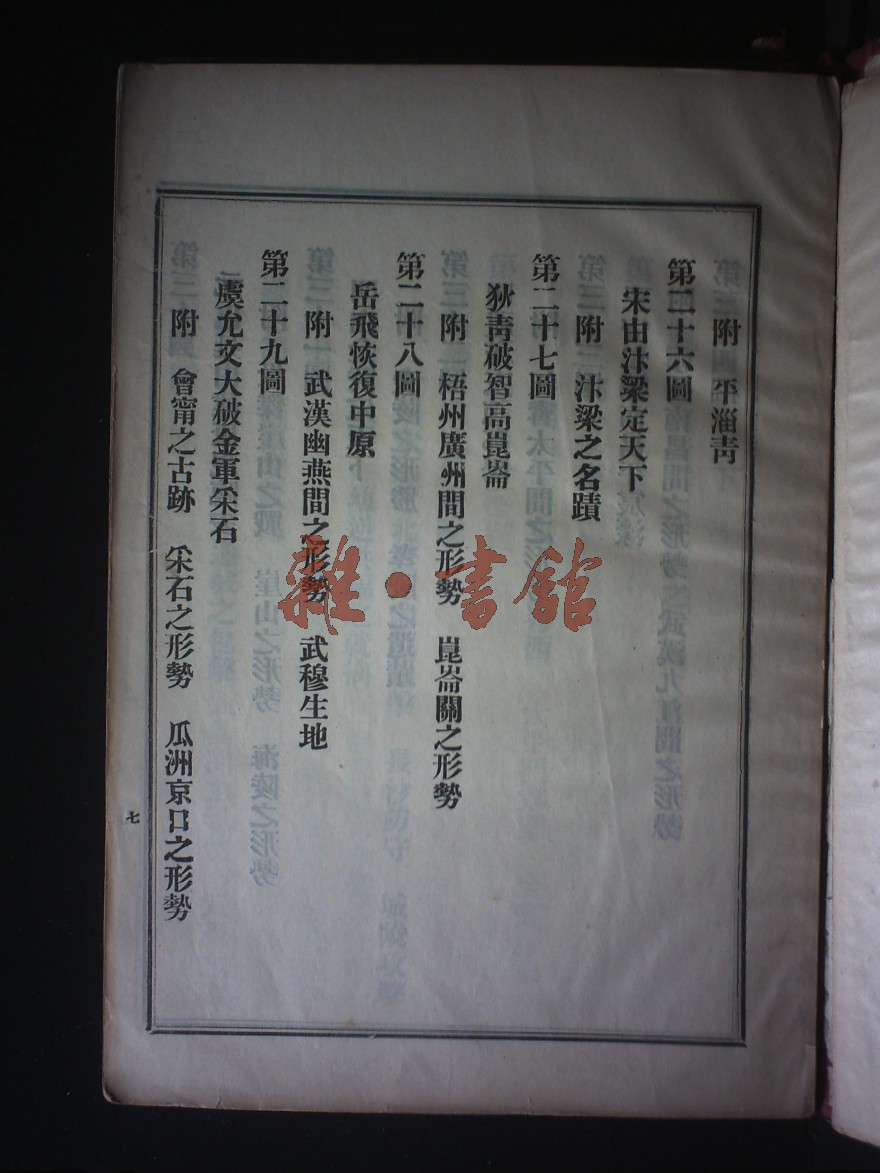 附 平淄青
第二十六圖
宋由汴梁定天下
附 汴梁之名蹟
第二十七圖
狄靑破智高崑崙
附 梧州廣州間之形勢 崑崙關之形勢
第二十八圖
岳飛恢復中原
附 武漢幽燕間之形勢 武穆生地
第二十九圖
虞允文大破金軍采石
附 會甯之古跡 采石之形勢 瓜洲京口之形勢
七
雜·書館